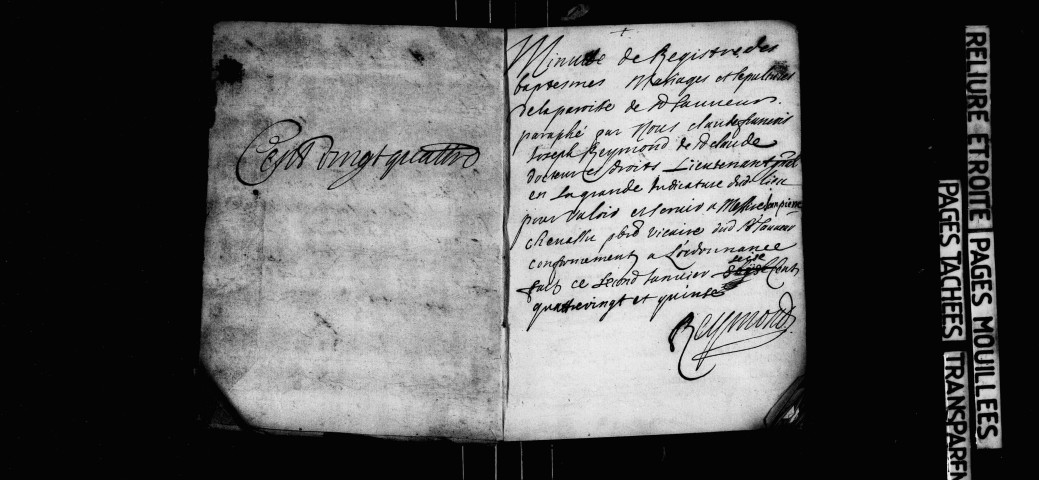 Cent vingt quattre
Minutte de Registre des
baptesmes Mariages et sepultures
de la paroisse de St Sauveur.
paraphé par Nous claude francois
Joseph Reymond de St claude
docteur es droits Lieutenant gnal
en La grande Judicature dud lieu
pour Valoir et servir a Messire Jean pierre
pbre vicaire dud St Sauveur
conformement a L'ordonnance
fait ce second Janvier seize Cent
quattrevingt et quinze
Reymond
RELIURE ETROITE PAGES MOUILLEES
PAGES TACHEES TRANSPAREN